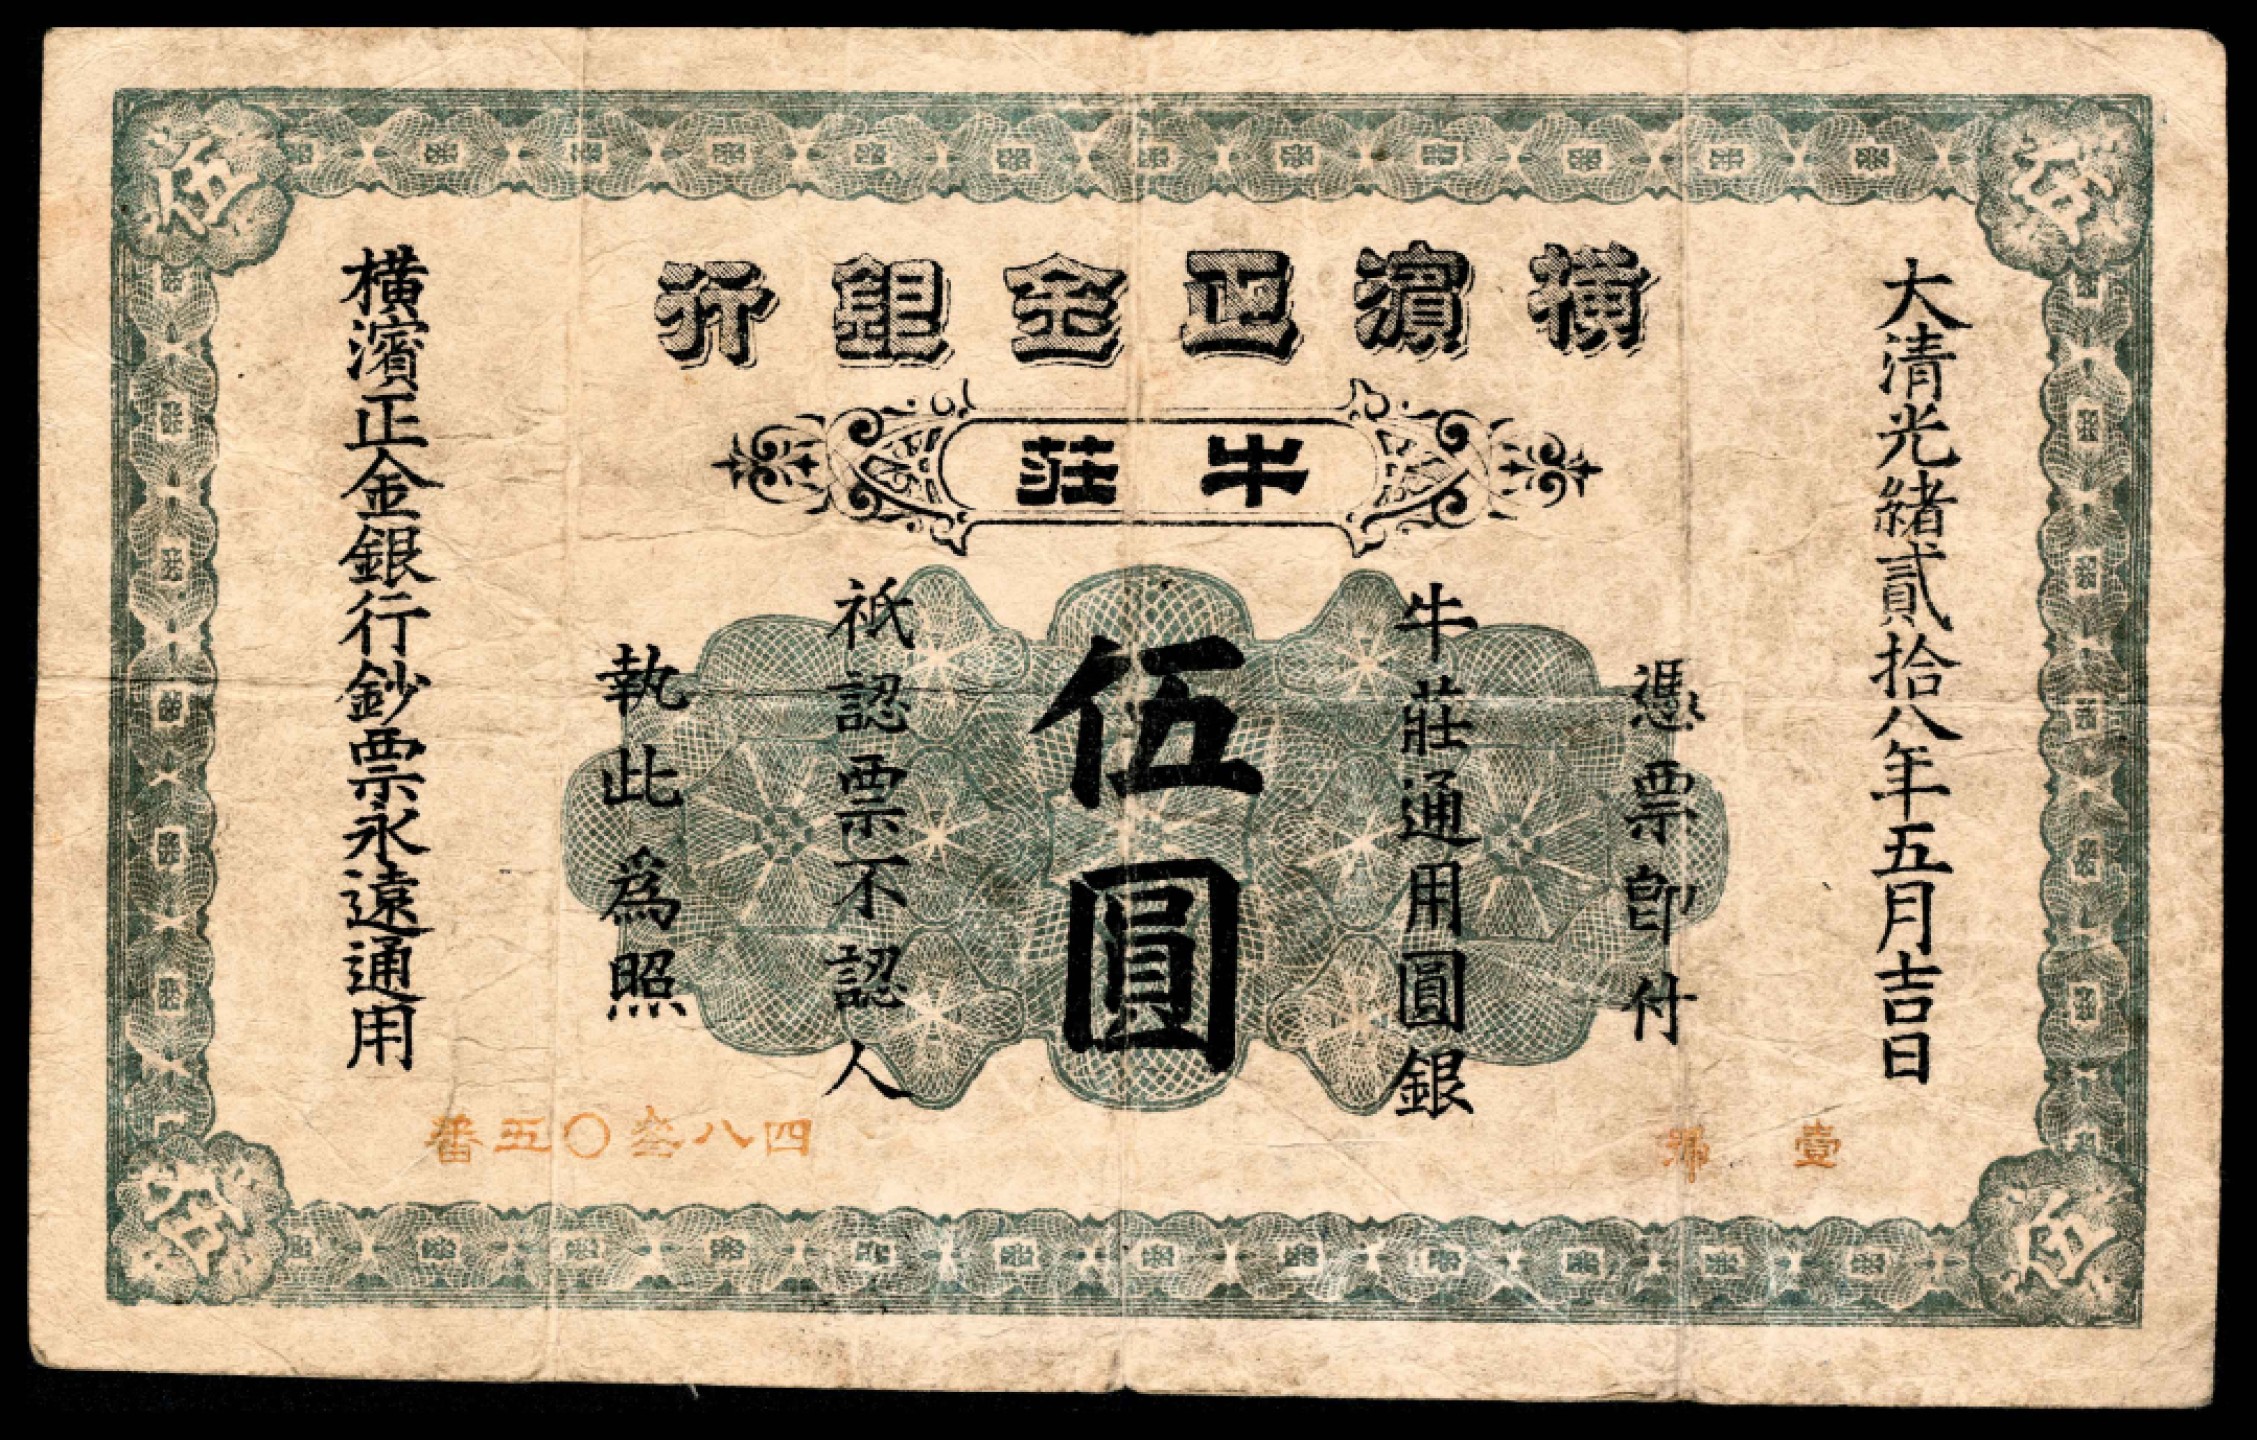 伍
伍
橫濱正金銀行
牛莊
大清光緒貳拾八年五月吉日
憑票卽付
牛莊通用圓銀
伍圓
祇認票不認人
執此爲照
橫濱正金銀行鈔票永遠通用
壹
四八叁〇五番
伍
伍